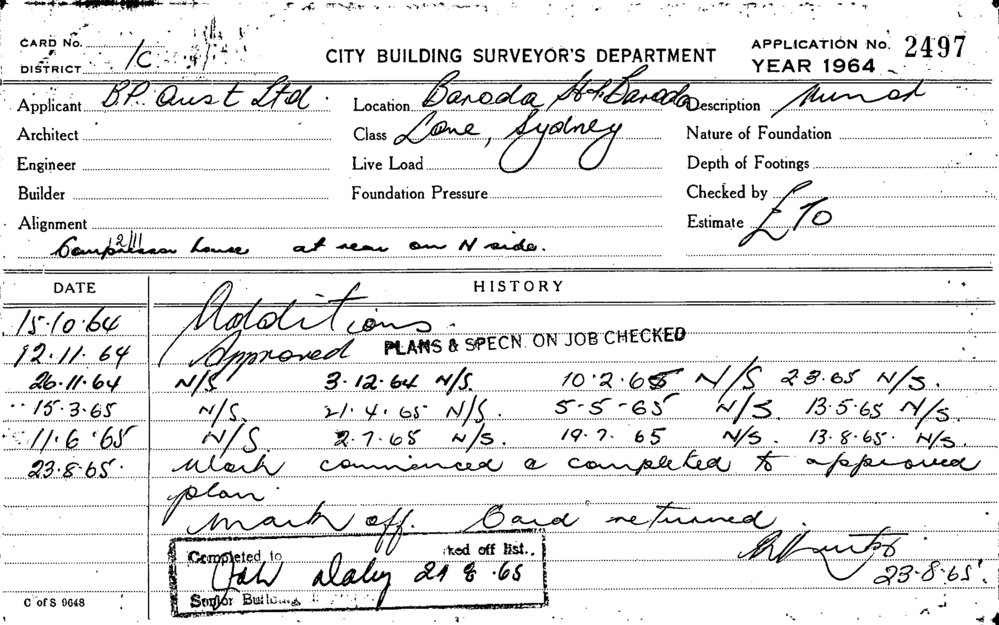 CARD No.
DISTRICT 1C
CITY BUILDING SURVEYOR'S DEPARTMENT
APPLICATION No. 2497
YEAR 1964
Applicant B.P. Aust Ltd. Location Baroda St & Baroda Description Minor
Architect Class Lane, Sydney Nature of Foundation
Engineer Live Load Depth of Footings
Builder Foundation Pressure Checked by
Alignment Estimate £70
Compressor house at rear on N side.
DATE HISTORY
15.10.64 Additions.
12.11.64 Approved PLANS & SPECN. ON JOB CHECKED
26.11.64 N/S 3.12.64 N/S. 10.2.65 N/S 2 3.65 N/S.
15.3.65 N/S. 21.4.65 N/S. 5-5-65 N/S 13.5.65 N/S.
11.6.65 N/S. 2.7.65 N/S. 19.7.65 N/S. 13.8.65. N/S.
23.8.65. Work commenced & completed to approved
plan.
Mark off. Card returned.
23.8.65.
Completed to ked off list.
Daley 24 8.65
Senior Building
C of S 9648